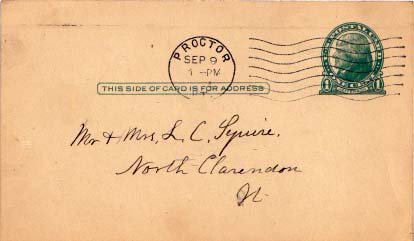 PROCTOR
SEP 9
1 - PM
VT.
THIS SIDE OF CARD IS FOR ADDRESS
Mr & Mrs. L. C. Squire.
North Clarendon
Vt.